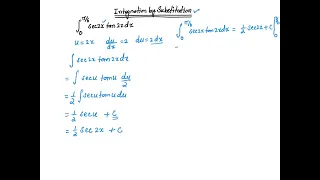 Integration by Substitution
∫₀^{π/6} sec2x tan2x dx
u = 2x   du/dx = 2   du = 2dx
∫ sec2x tan2x dx
= ∫ secu tanu du/2
= 1/2 ∫ secu tanu du
= 1/2 secu + C
= 1/2 sec2x + C
∫₀^{π/6} sec2x tan2x dx = 1/2 sec2x + C |₀^{π/6}